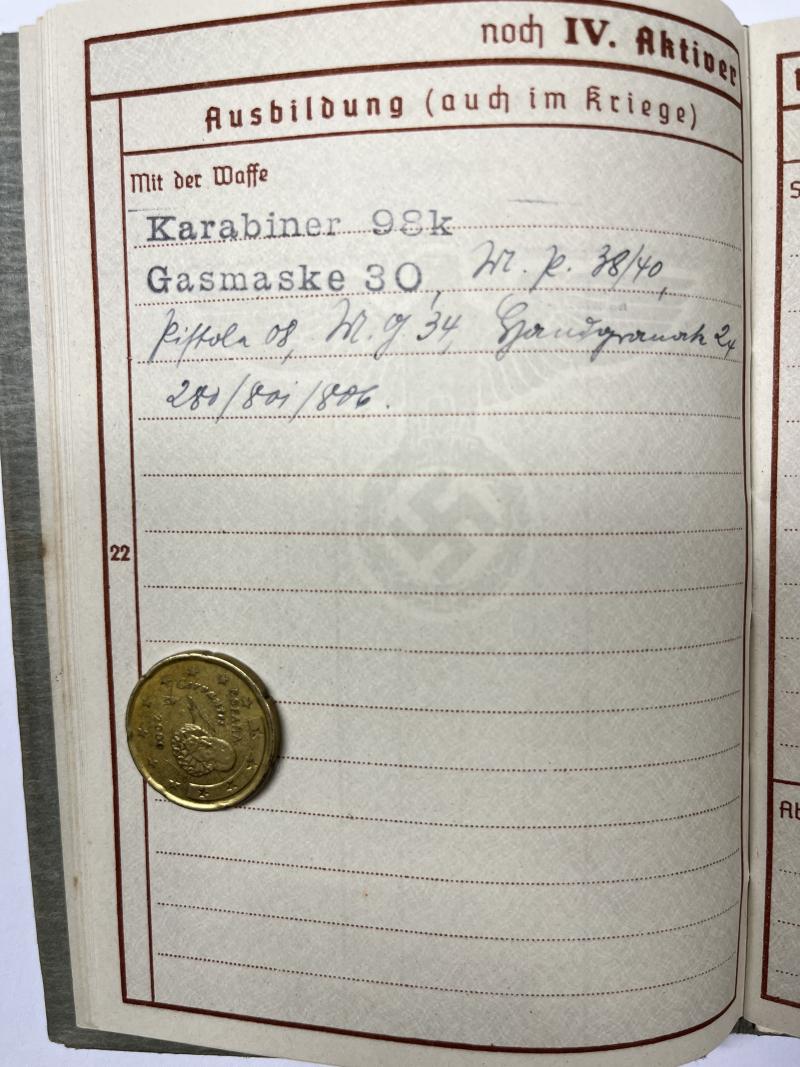 noch IV. Aktiver
Ausbildung (auch im Kriege)
Mit der Waffe
Karabiner 98k
Gasmaske 30, M. P. 38/40,
Pistole 08, M. G 34, Handgranate 24
22
Cervantes
ESPAÑA